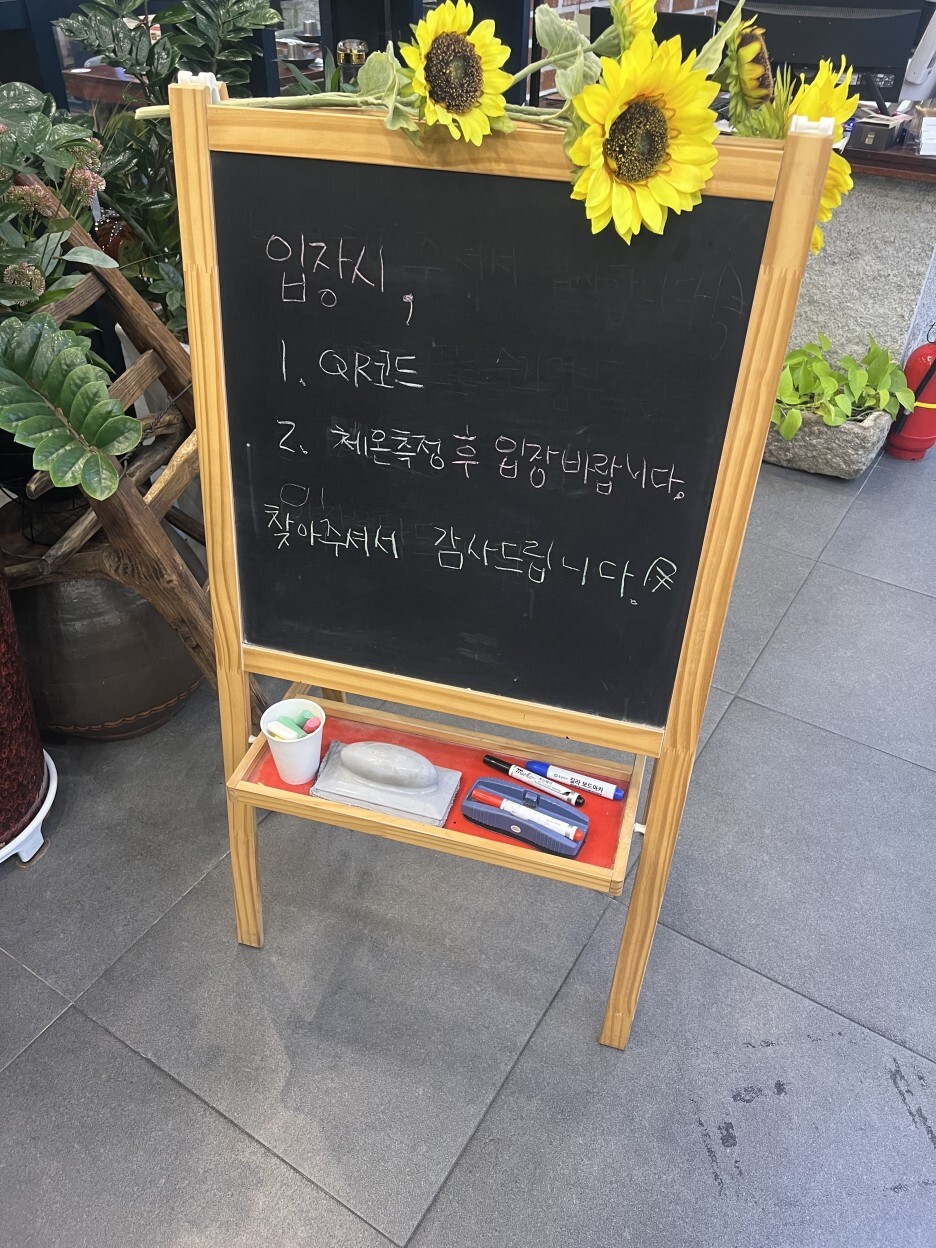 입장시,
1. QR코드
2. 체온측정 후 입장바랍니다.
찾아주셔서 감사드립니다.
칼라 보드마카